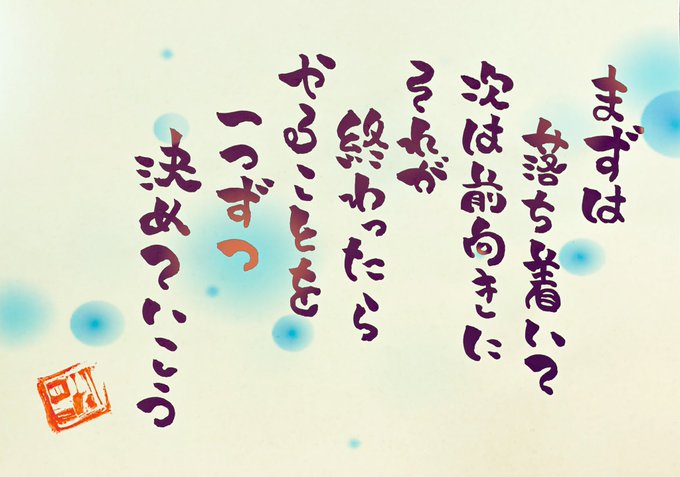 まずは
落ち着いて
次は前向きに
それが
終わったら
やることを
一つずつ
決めていこう